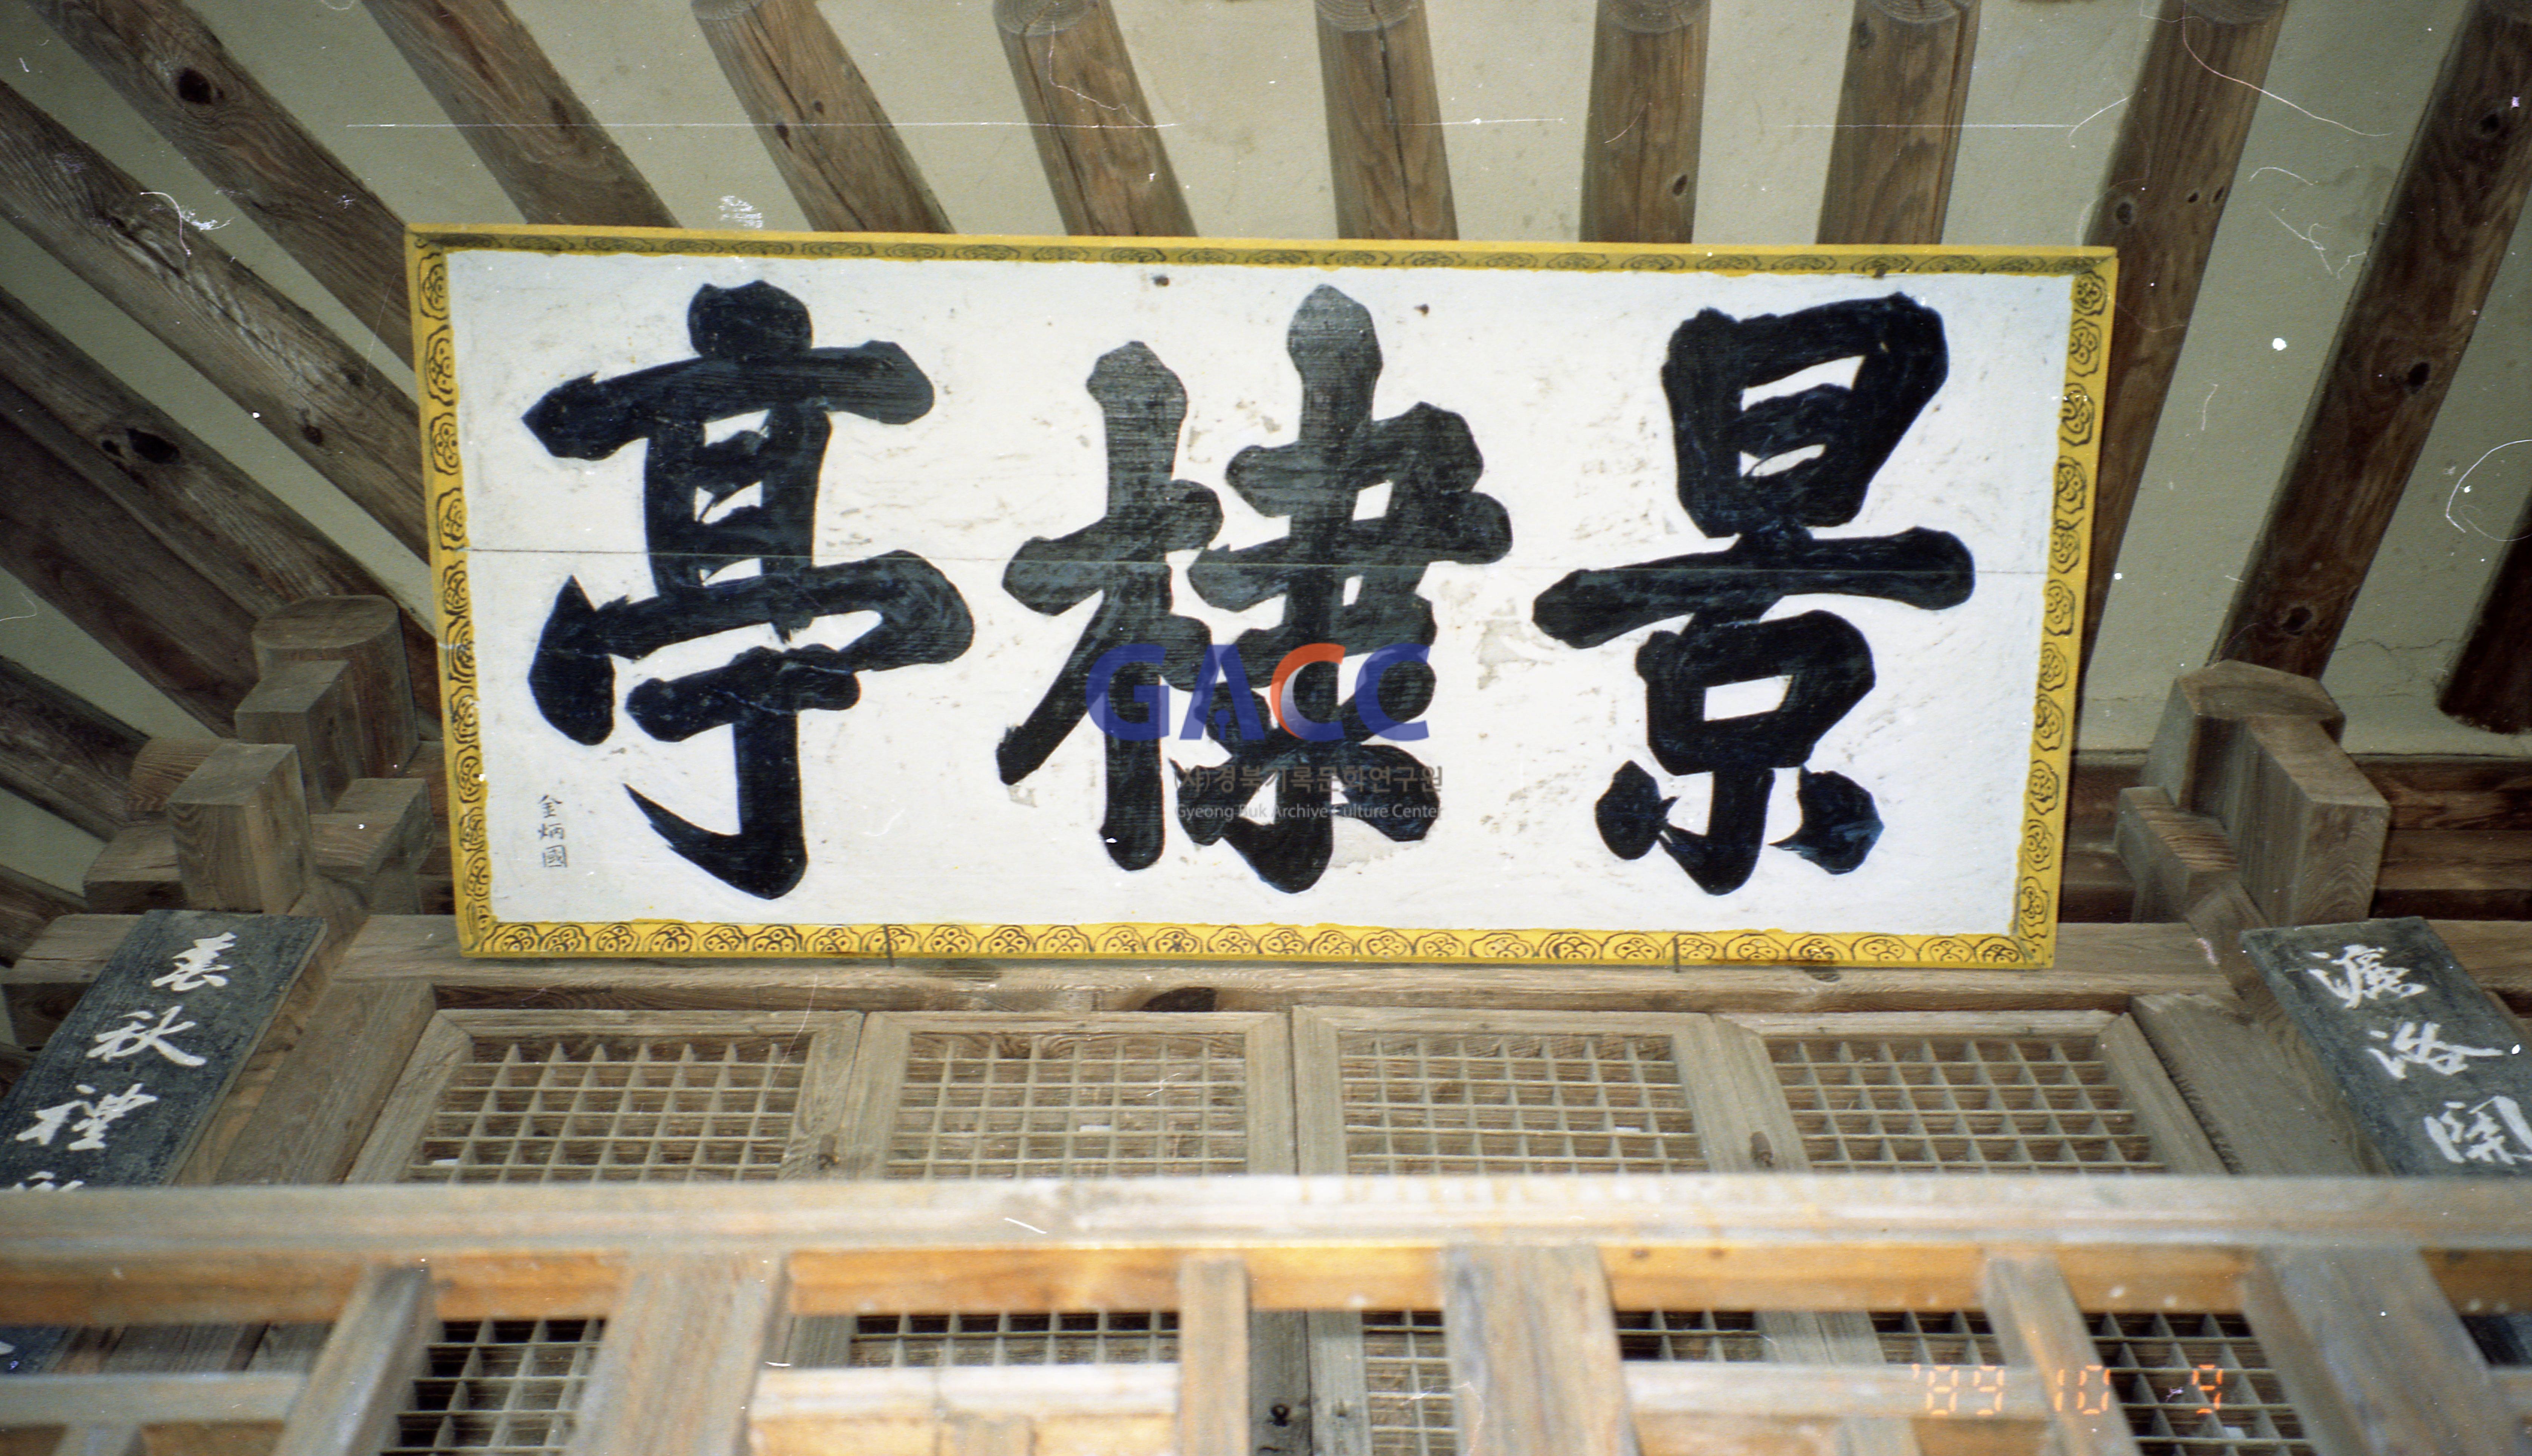 景棣亭
金炳國
濂洛関
春秋禮
GACC
(사)경북기록문화연구원
Gyeong Buk Archive Culture Center
'89 10 9